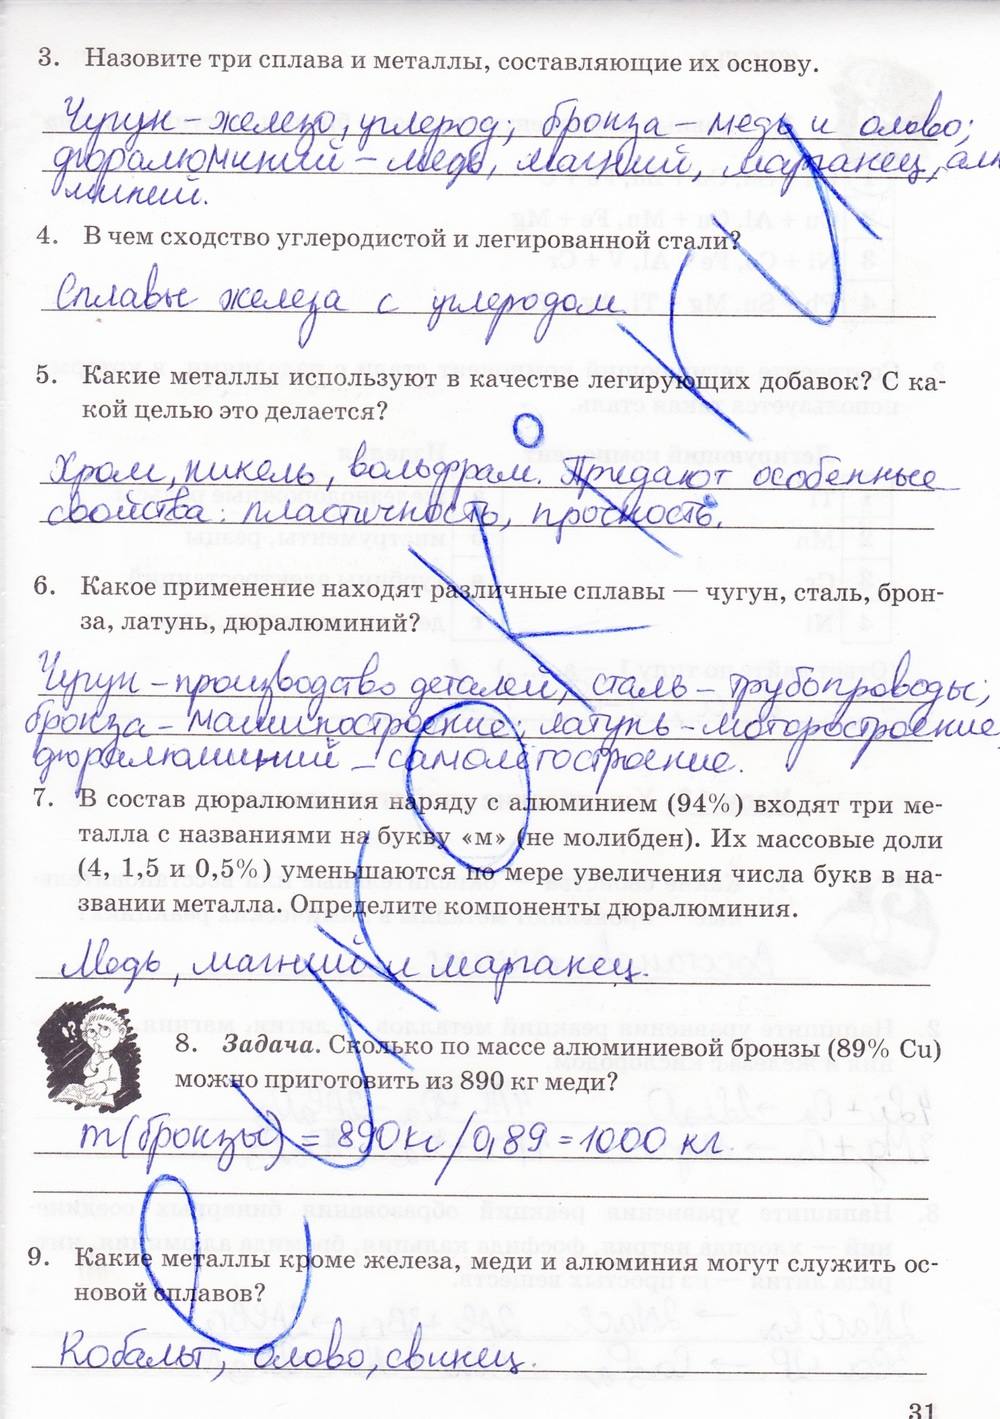 3. Назовите три сплава и металлы, составляющие их основу.
Чугун – железо, углерод; бронза – медь и олово;
дюралюминий – медь, магний, марганец, алю
миний.
4. В чем сходство углеродистой и легированной стали?
Сплавы железа с углеродом.
5. Какие металлы используют в качестве легирующих добавок? С ка-
кой целью это делается?
Хром, никель, вольфрам. Придают особенные
свойства: пластичность, прочность.
6. Какое применение находят различные сплавы — чугун, сталь, брон-
за, латунь, дюралюминий?
Чугун – производство деталей; сталь – трубопроводы;
бронза – машиностроение; латунь – моторостроение
дюралюминий – самолетостроение.
7. В состав дюралюминия наряду с алюминием (94%) входят три ме-
талла с названиями на букву «м» (не молибден). Их массовые доли
(4, 1,5 и 0,5%) уменьшаются по мере увеличения числа букв в на-
звании металла. Определите компоненты дюралюминия.
Медь, магний и марганец.
8. Задача. Сколько по массе алюминиевой бронзы (89% Cu)
можно приготовить из 890 кг меди?
m(бронзы) = 890кг/0,89 = 1000 кг.
9. Какие металлы кроме железа, меди и алюминия могут служить ос-
новой сплавов?
Кобальт, олово, свинец.
31